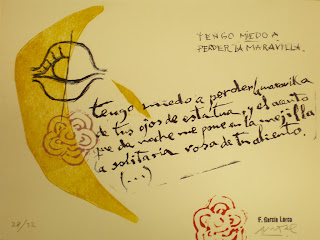 TENGO MIEDO A
PERDER LA MARAVILLA.
tengo miedo a perder la maravilla
de tus ojos de estatua, y el acento
que de noche me pone en la mejilla
la solitaria rosa de tu aliento.
(...)
F. García Lorca
28/32